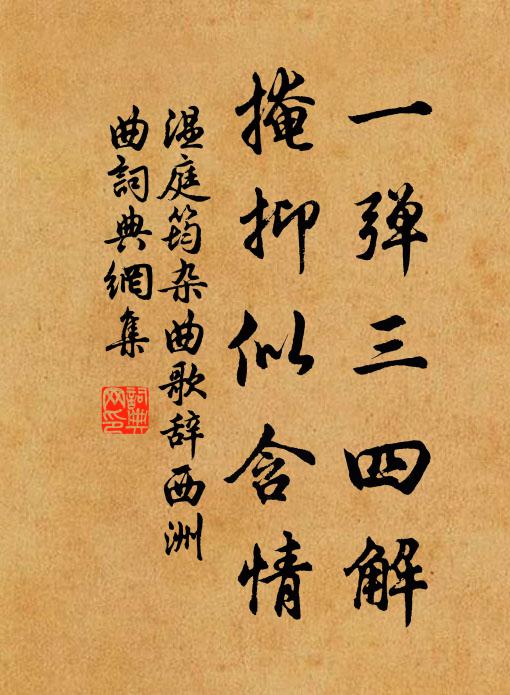 一弹三四解
掩抑似含情
温庭筠杂曲歌辞西洲
曲詞典網集
詞典
网印